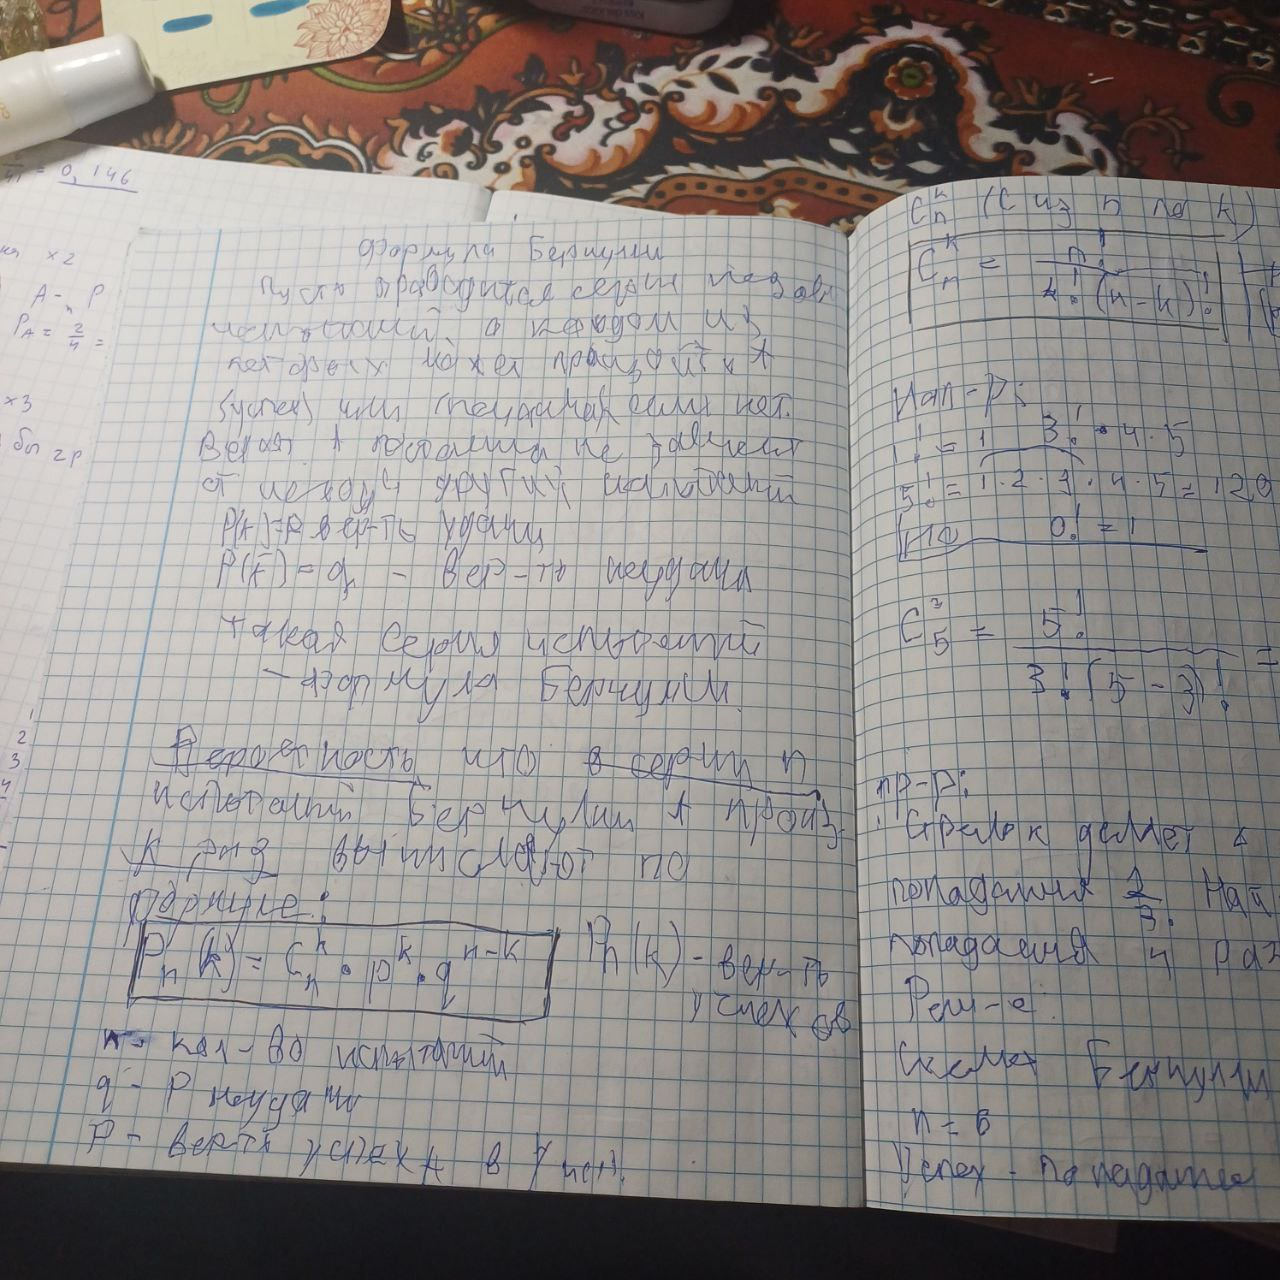 = 0,146
x2
A - P
P_A = 2/4 =
x3
1
2
3
4
Формула Бернулли
Пусть проводится серия незав
испытаний в каждом из
которых может произойти A
(успех) или (неудача) если нет.
Вероят. A постоянна не зависит
от исхода других испытаний
P(A)=P вер-ть удачи
P(A̅) = q - вер-ть неудачи
такая серия испытаний
- формула Бернулли.
Вероятность что в серии n
испытаний Бернулли A произ-
k раз вычисляют по
формуле:
P_n(k) = C_n^k · p^k · q^(n-k)
P_n(k) - вер-ть
успехов
n - кол-во испытаний
q - P неудачи
P - верть успех A в 1 исп.
C_n^k (C из n по k)
C_n^k = n! / k!(n-k)!
Нап-р:
1! = 1 3! · 4 · 5
5! = 1·2·3·4·5 = 120
Но 0! = 1
C_5^3 = 5! / 3!(5-3)! =
пр-р:
Стрелок делает
попадания 2/3. Най
попадания 4 раз
Реш-е:
Схема Бернулли
n = 6
Успех - попадание